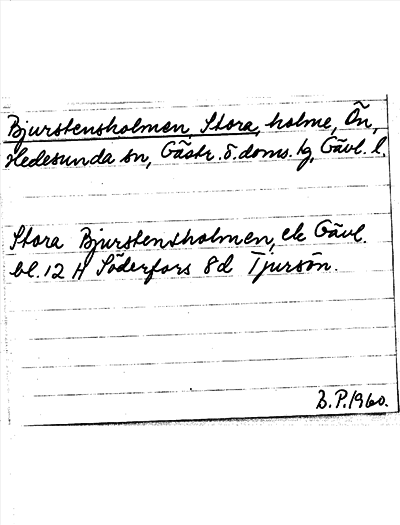 Bjurstensholmen, Stora, holme, Ön,
Hedesunda sn, Gästr. ö. doms. tg, Gävl. l.
Stora Bjurstensholmen, ek Gävl.
bl. 12 H Söderfors 8d Tjursön.
B.P. 1960.